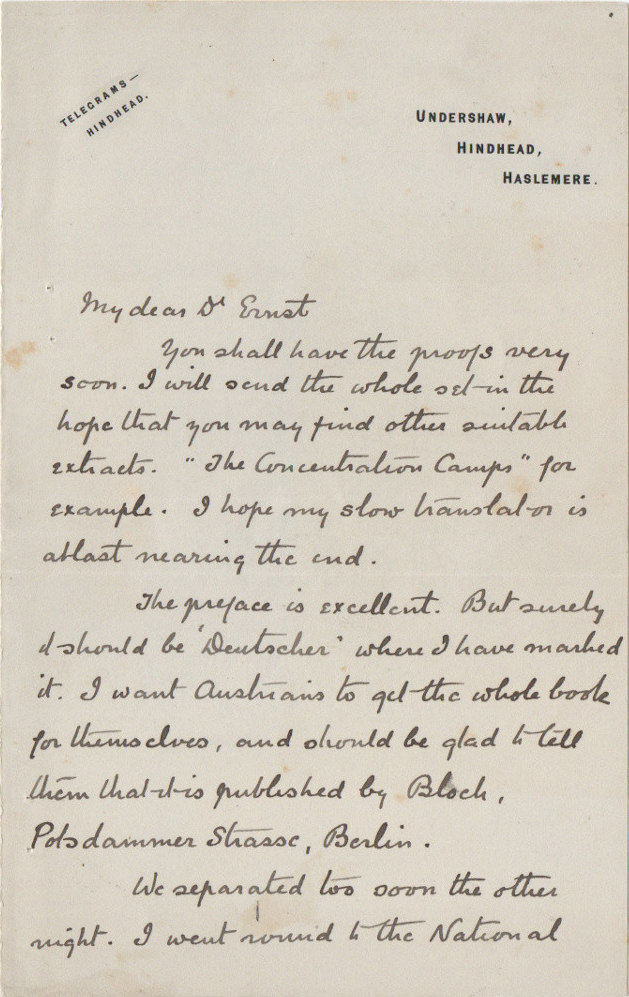 TELEGRAMS—
HINDHEAD.
UNDERSHAW,
HINDHEAD,
HASLEMERE.
My dear Dr Ernst
You shall have the proofs very
soon. I will send the whole set in the
hope that you may find other suitable
extracts. "The Concentration Camps" for
example. I hope my slow translator is
at last nearing the end.
The preface is excellent. But surely
it should be 'Deutscher' where I have marked
it. I want Austrians to get the whole book
for themselves, and should be glad to tell
them that it is published by Bloch,
Potsdammer Strasse, Berlin.
We separated too soon the other
night. I went round to the National